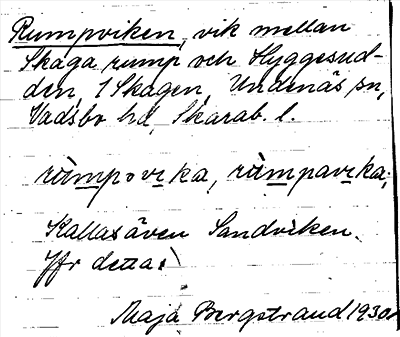 Rumpviken, vik mellan
Skaga rump och Hyggesud-
den, i Skagen, Undenäs sn,
Vadsbo hd, Skarab. l.
rùmpovıka, rùmpavıka;
Kallas även Sandviken.
Jfr detta!
Maja Bergstrand 1930.